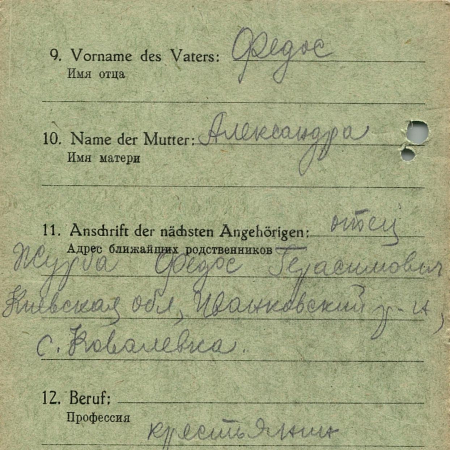 9. Vorname des Vaters: Федос
Имя отца
10. Name der Mutter: Александра
Имя матери
11. Anschrift der nächsten Angehörigen: отец
Адрес ближайших родственников
Журба Федос Герасимович
Киевская обл, Иванковский р-н,
с. Ковалевка.
12. Beruf:
Профессия
крестьянин